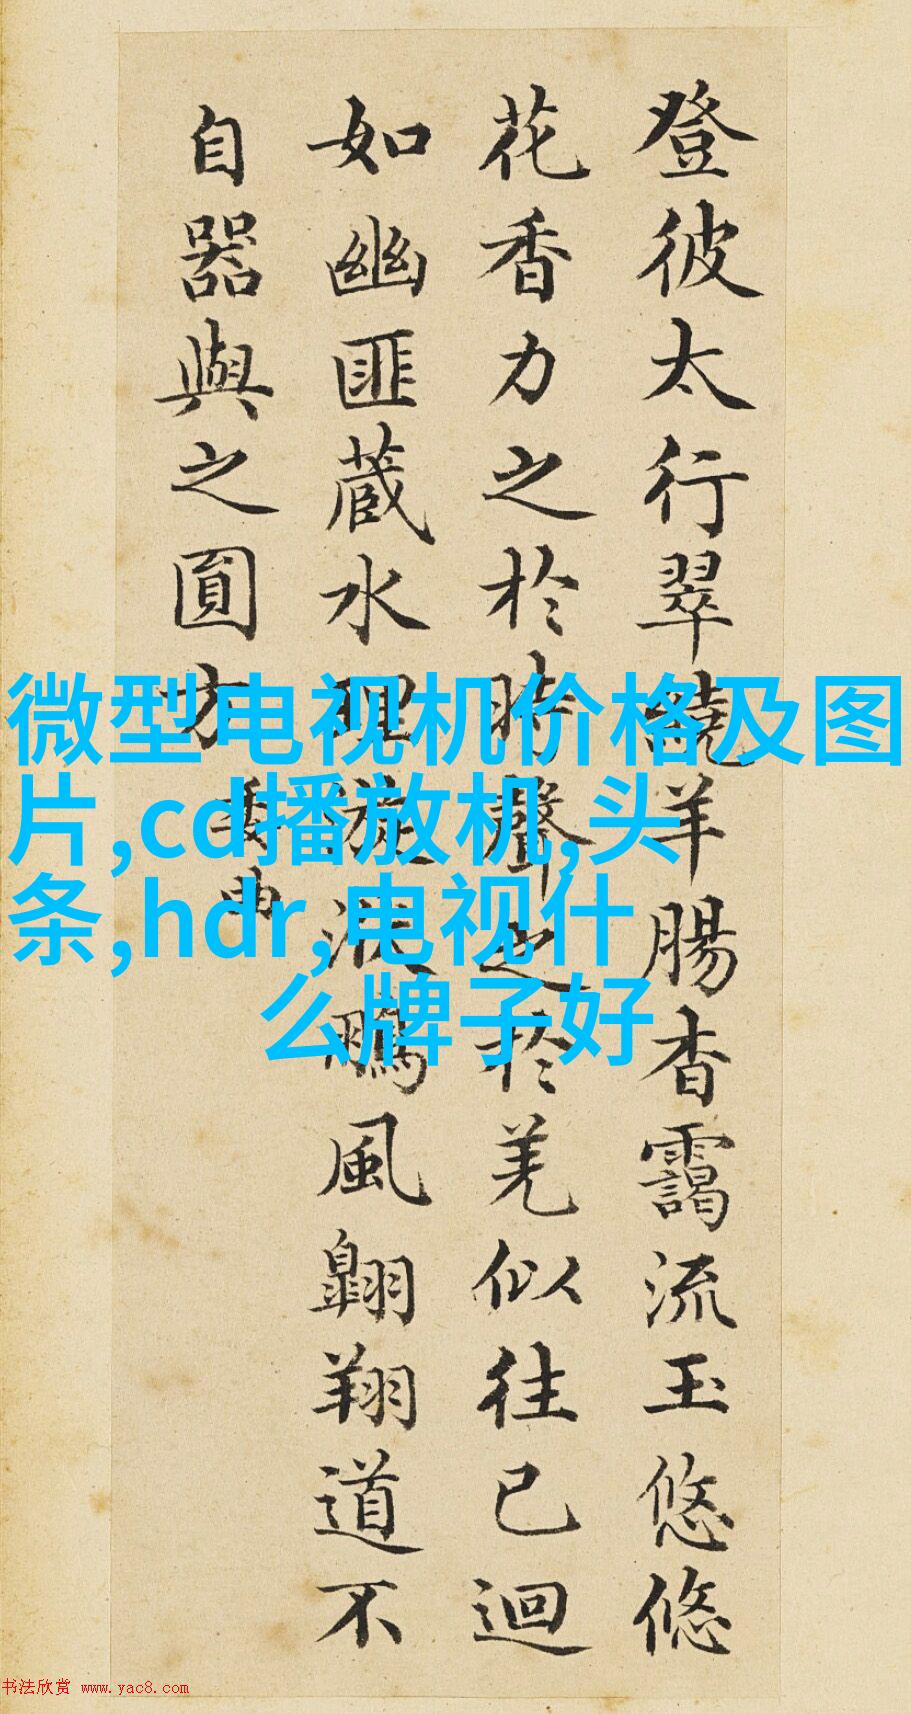 登彼太行翠繞羊腸杳靄流玉悠悠
花香力之於時聲之於羌似往已迴
如幽匪蔵水理漩洑鵬風翺翔道不
自器與之圓方
委曲
微型电视机价格及图
片,cd播放机,头
条,hdr,电视什
么牌子好
书法欣赏 www.yac8.com